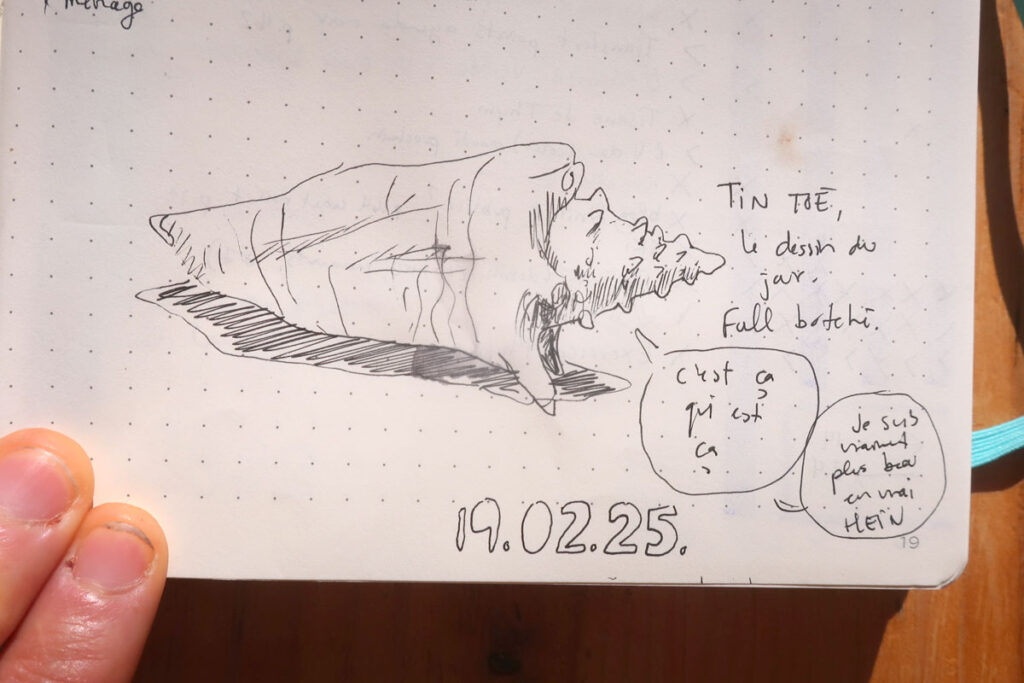 x ménage
TIN TOÉ,
le dessin du
jour.
Full botché.
c'est ça
qui est
ça
Je suis
vraiment
plus beau
en vrai
HEIN
19.02.25.
19